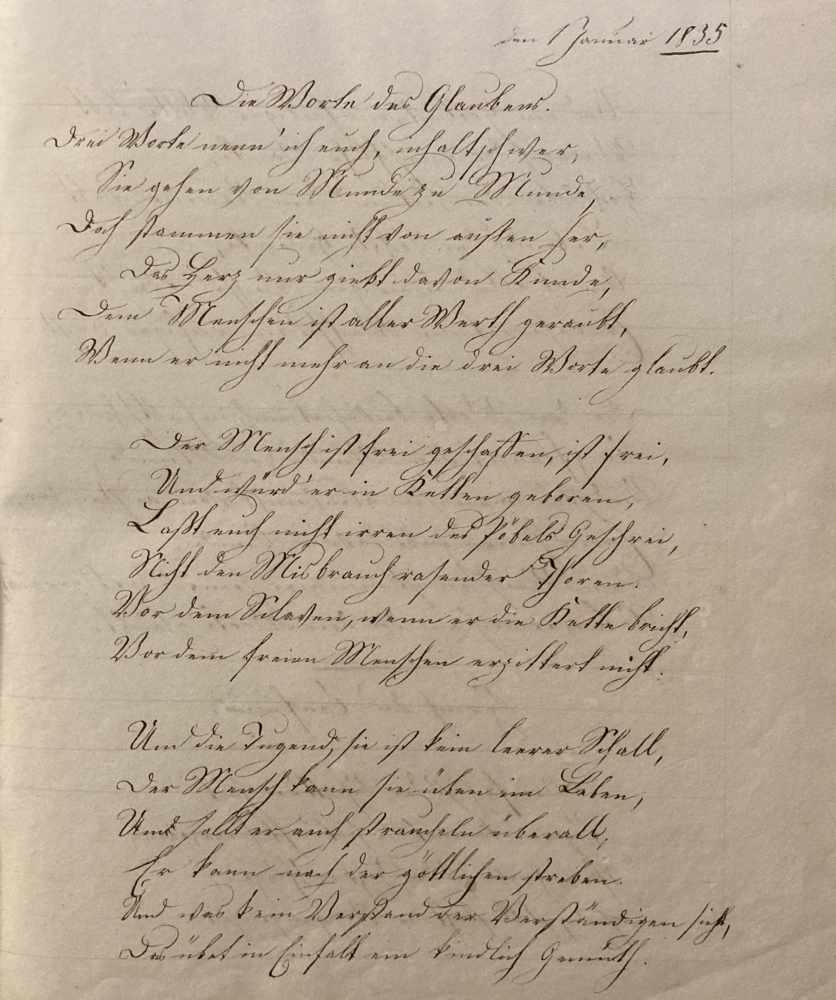 den 1 Januar 1835
Die Worte des Glaubens.
Drei Worte nenn' ich euch, inhaltschwer,
Sie gehen von Munde zu Munde,
Doch stammen sie nicht von aussen her,
Das Herz nur giebt davon Kunde,
Dem Menschen ist aller Werth geraubt,
Wenn er nicht mehr an die drei Worte glaubt.
Der Mensch ist frei geschaffen, ist frei,
Und würd' er in Ketten geboren,
Laßt euch nicht irren des Pöbels Geschrei,
Nicht den Misbrauch rasender Thoren.
Vor dem Sclaven, wenn er die Kette bricht,
Vor dem freien Menschen erzittert nicht.
Und die Tugend, sie ist kein leerer Schall,
Der Mensch kann sie üben im Leben,
Und sollt er auch straucheln überall,
Er kann nach der göttlichen streben.
Und was kein Verstand der Verständigen sieht,
Das übet in Einfalt ein kindlich Gemüth.